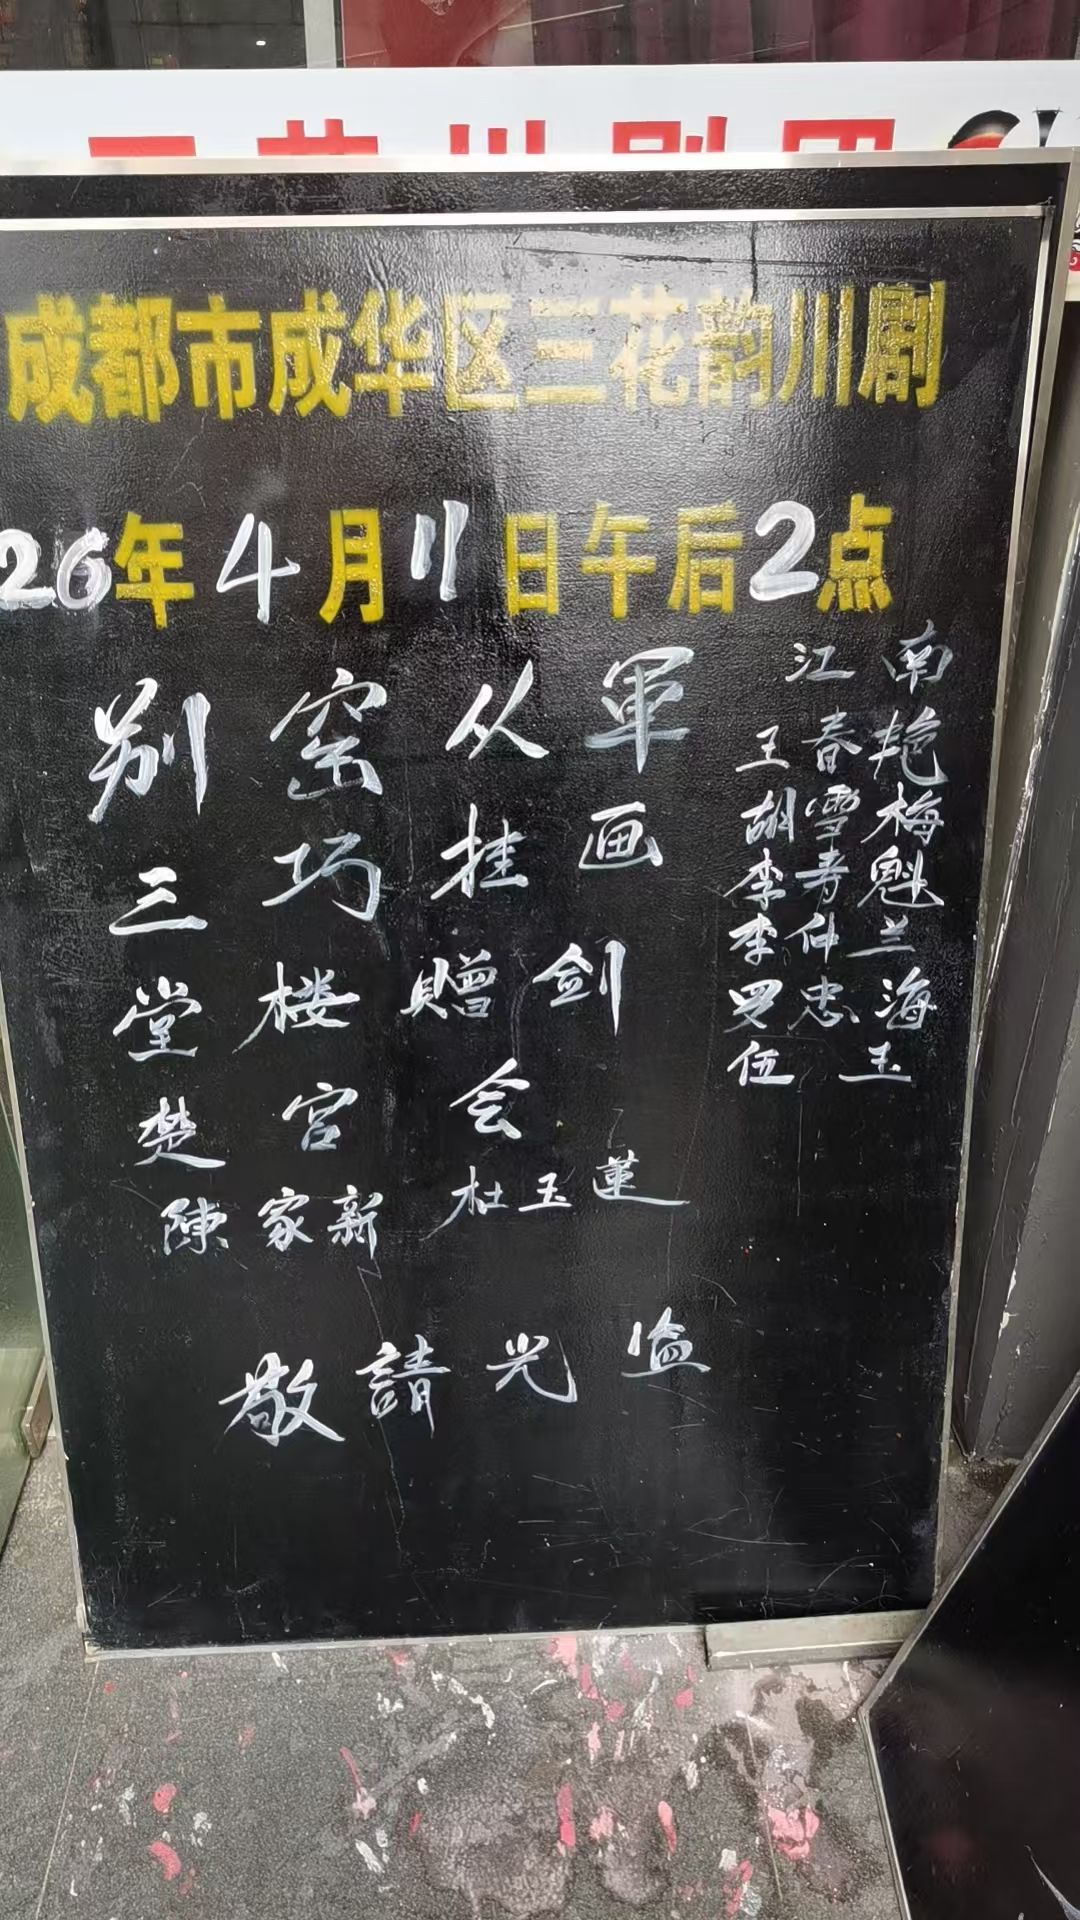 成都市成华区三花韵川剧
26年4月11日午后2点
别窑从军
三巧挂画
堂楼赠剑
楚宫会
陳家新 杜玉莲
江南
王春艳
胡雪梅
李芳魁
李仲兰
罗忠海
伍玉
敬請光临